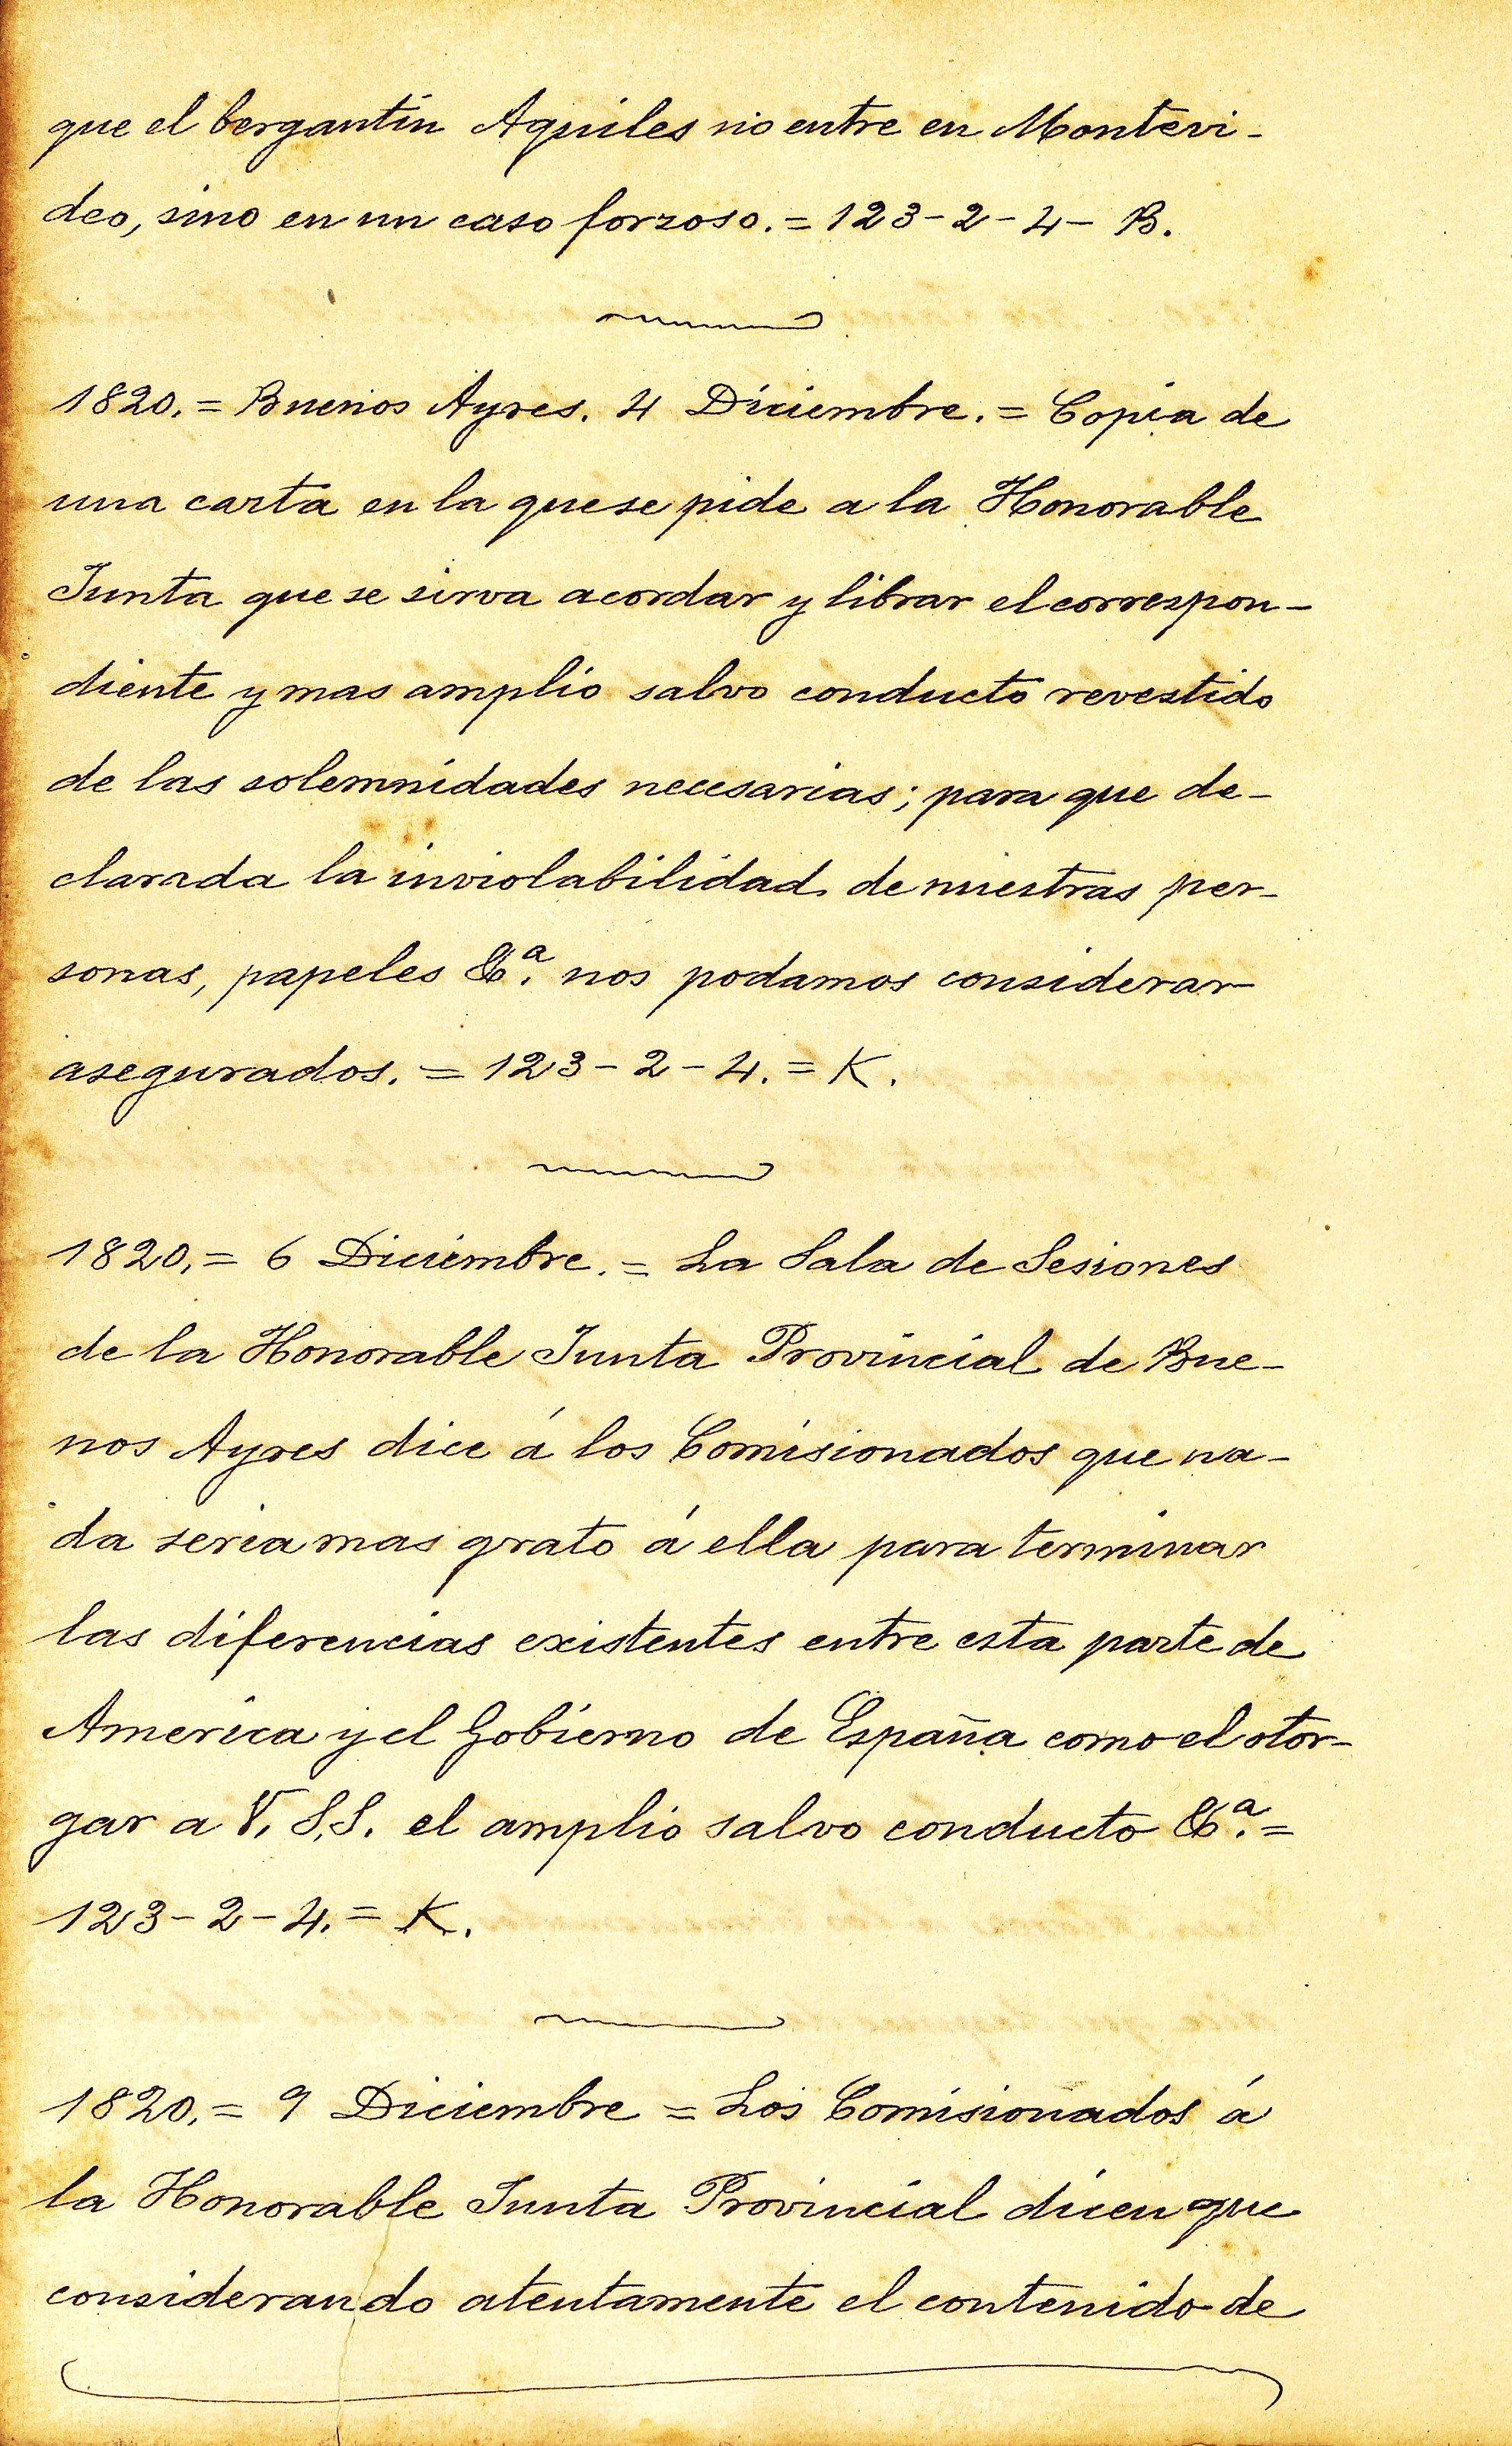 que el bergantin Aquiles no entre en Montevi-
deo, sino en un caso forzoso. = 123 - 2 - 4 - B.
1820. = Buenos Ayres. 4 Diciembre. = Copia de
una carta en la que se pide a la Honorable
Junta que se sirva acordar y librar el correspon-
diente y mas amplio salvo conducto revestido
de las solemnidades necesarias; para que de-
clarada la inviolabilidad de nuestras per-
sonas, papeles &ª. nos podamos considerar
asegurados. = 123 - 2 - 4. = K.
1820. = 6 Diciembre. = La Sala de Sesiones
de la Honorable Junta Provincial de Bue-
nos Ayres dice á los Comisionados que na-
da seria mas grato á ella para terminar
las diferencias existentes entre esta parte de
America y el Gobierno de España como el otor-
gar a V. S.S. el amplio salvo conducto &ª. =
123 - 2 - 4. = K.
1820. = 9 Diciembre = Los Comisionados á
la Honorable Junta Provincial dicen que
considerando atentamente el contenido de